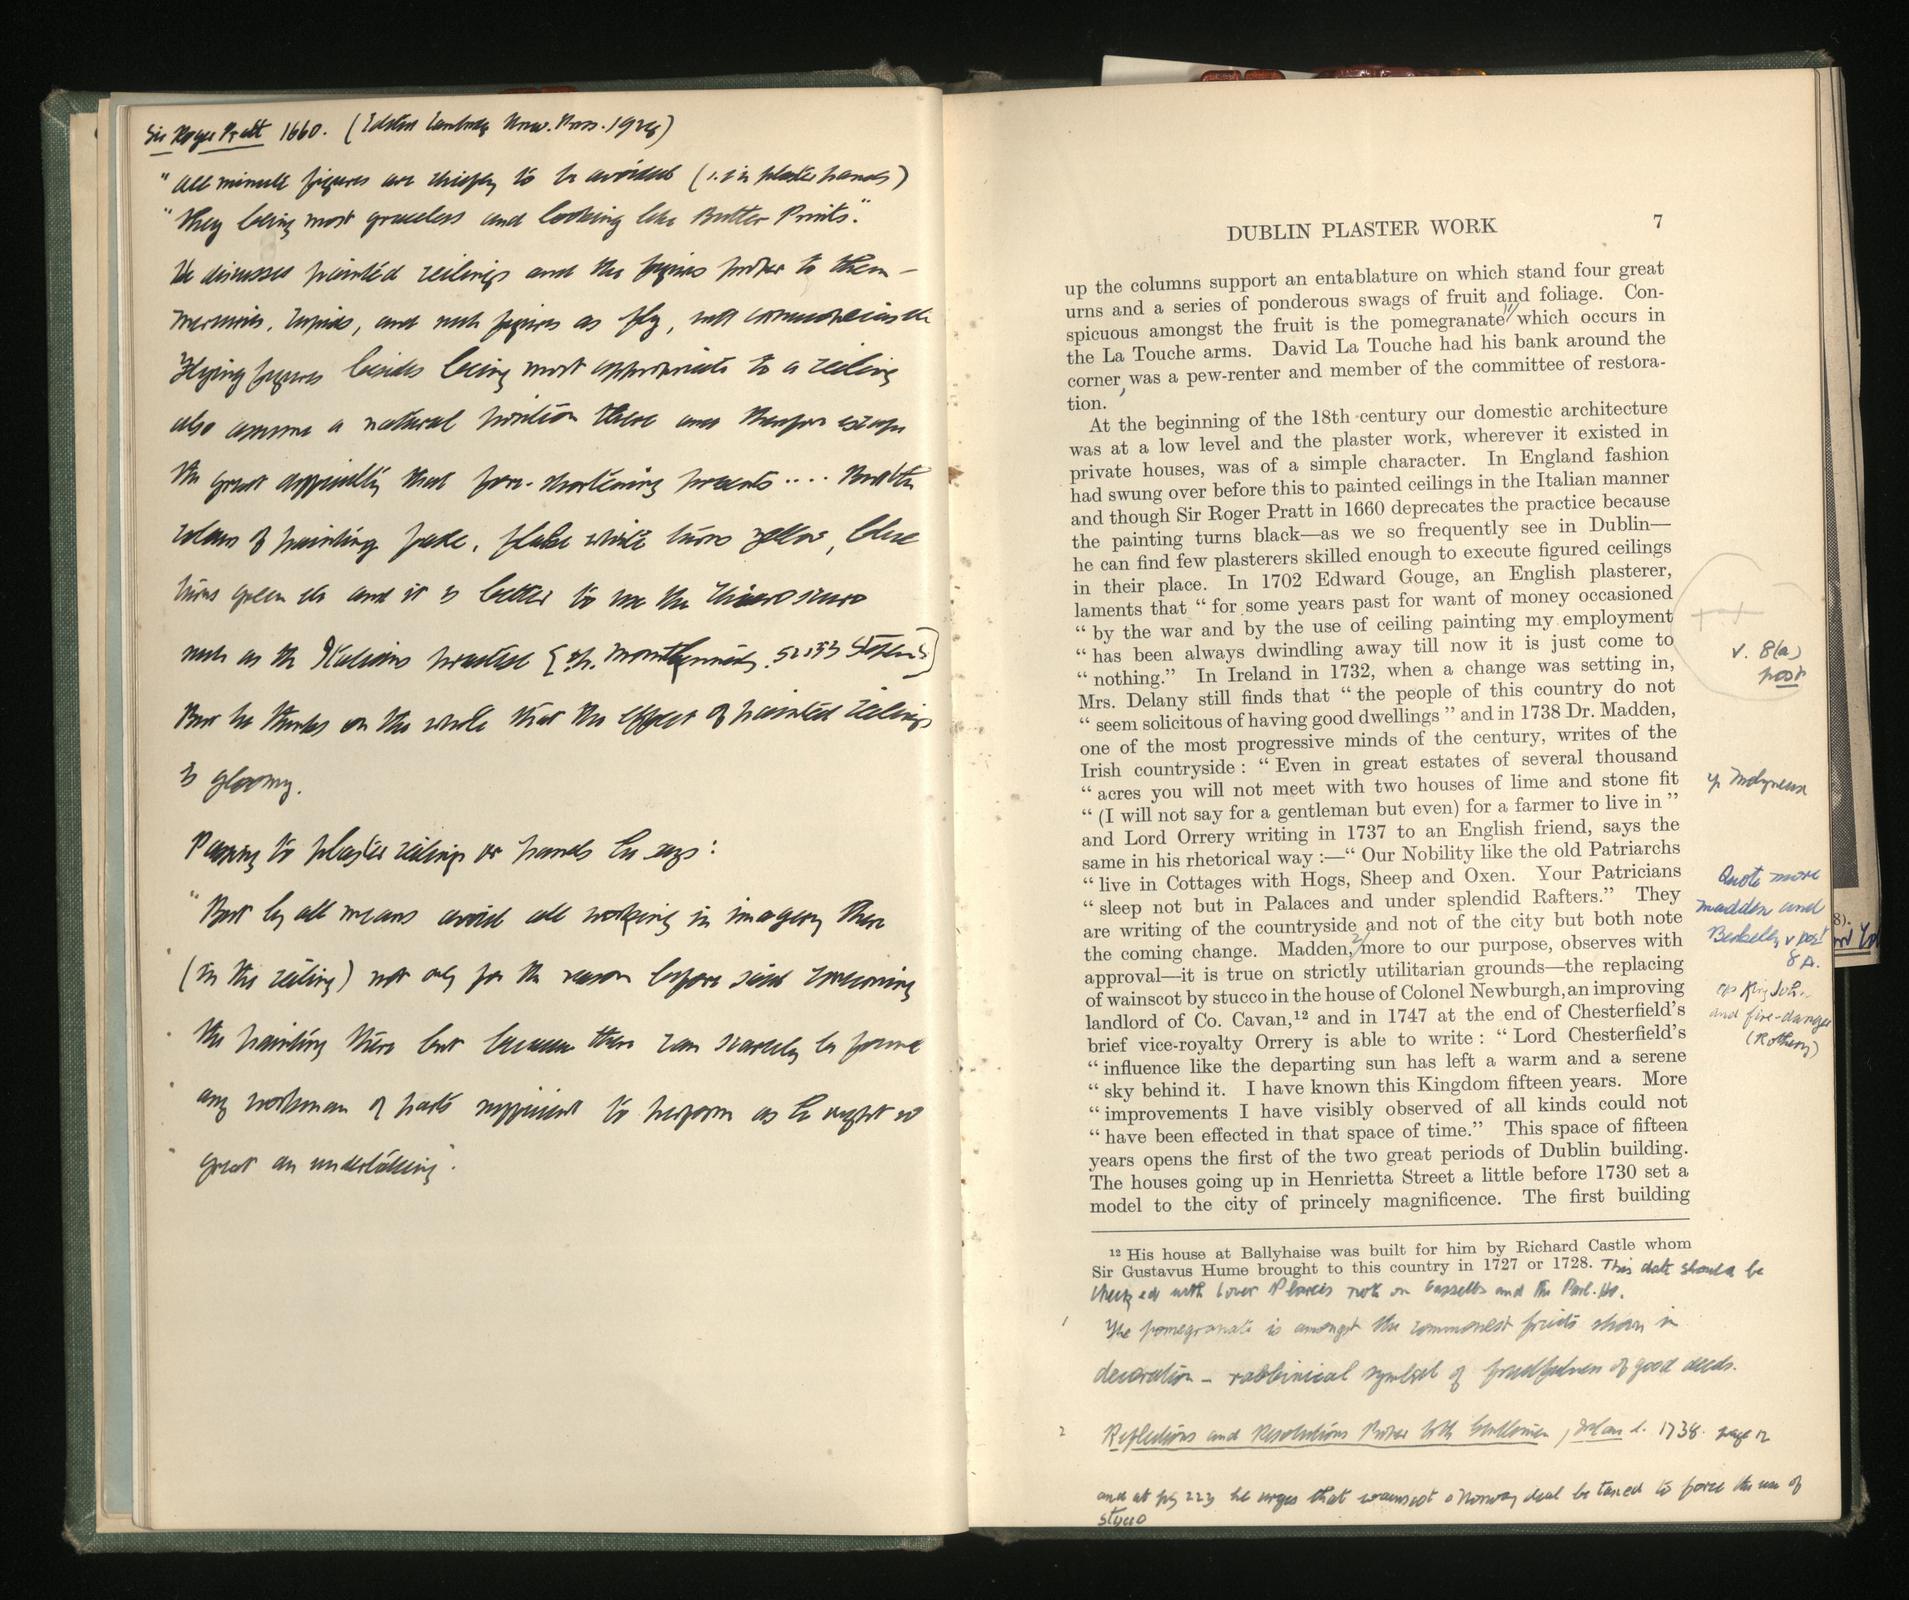 Sir Roger Pratt 1660. (Edited Cambridg Univ. Press. 1928)
"All minute figures are chiefly to be avoided (i.e in plaster panels)
"they being most graceless and looking like Butter Prints".
He discusses painted ceilings and the figures proper to them —
mermaids, Cupids, and such figures as fly, not
Flying figures besides being most appropriate to a ceiling
also assume a natural position there and therefore escape
the great difficulty that fore-shortening presents .... But the
colours of painting fade, flake white turns yellow, blue
turns green etc and it is better to use the Chiaro scuro
such as the Italians practise
But he thinks on the whole that the effect of painted ceilings
is gloomy.
Passing to plaster ceilings or panels he says:
"But by all means avoid all working in imagery there
(in the ceiling) not only for the reason before said concerning
the painting there but because there can scarcely be found
any workman of parts sufficient to perform as he ought so
great an undertaking".
DUBLIN PLASTER WORK 7
up the columns support an entablature on which stand four great
urns and a series of ponderous swags of fruit and foliage. Con-
spicuous amongst the fruit is the pomegranate which occurs in
the La Touche arms. David La Touche had his bank around the
corner, was a pew-renter and member of the committee of restora-
tion.
At the beginning of the 18th century our domestic architecture
was at a low level and the plaster work, wherever it existed in
private houses, was of a simple character. In England fashion
had swung over before this to painted ceilings in the Italian manner
and though Sir Roger Pratt in 1660 deprecates the practice because
the painting turns black—as we so frequently see in Dublin—
he can find few plasterers skilled enough to execute figured ceilings
in their place. In 1702 Edward Gouge, an English plasterer,
laments that " for some years past for want of money occasioned
" by the war and by the use of ceiling painting my employment
" has been always dwindling away till now it is just come to
" nothing." In Ireland in 1732, when a change was setting in,
v. 8(a)
post
Mrs. Delany still finds that " the people of this country do not
" seem solicitous of having good dwellings " and in 1738 Dr. Madden,
one of the most progressive minds of the century, writes of the
Irish countryside : " Even in great estates of several thousand
" acres you will not meet with two houses of lime and stone fit
cp Molyneux
" (I will not say for a gentleman but even) for a farmer to live in "
and Lord Orrery writing in 1737 to an English friend, says the
same in his rhetorical way :—" Our Nobility like the old Patriarchs
" live in Cottages with Hogs, Sheep and Oxen. Your Patricians
" sleep not but in Palaces and under splendid Rafters." They
are writing of the countryside and not of the city but both note
the coming change. Madden, more to our purpose, observes with
Quote more
Madden and
Berkeley v post
8A.
approval—it is true on strictly utilitarian grounds—the replacing
of wainscot by stucco in the house of Colonel Newburgh, an improving
landlord of Co. Cavan,¹² and in 1747 at the end of Chesterfield's
and fire-danger
(Rothery)
brief vice-royalty Orrery is able to write : " Lord Chesterfield's
" influence like the departing sun has left a warm and a serene
" sky behind it. I have known this Kingdom fifteen years. More
" improvements I have visibly observed of all kinds could not
" have been effected in that space of time." This space of fifteen
years opens the first of the two great periods of Dublin building.
The houses going up in Henrietta Street a little before 1730 set a
model to the city of princely magnificence. The first building
¹² His house at Ballyhaise was built for him by Richard Castle whom
Sir Gustavus Hume brought to this country in 1727 or 1728. This date should be
checked with Lover Pearce's note on Cassells and the Parl. Ho.
1 The pomegranate is amongst the commonest fruits shown in
decoration — rabbinical symbol of fruitfulness of good deeds.
2 Reflections and Resolutions Proper for the Gentlemen, Ireland. 1738. page 12
and at pg 223 he urges that wainscot & Norway deal be taxed to force the use of
stucco